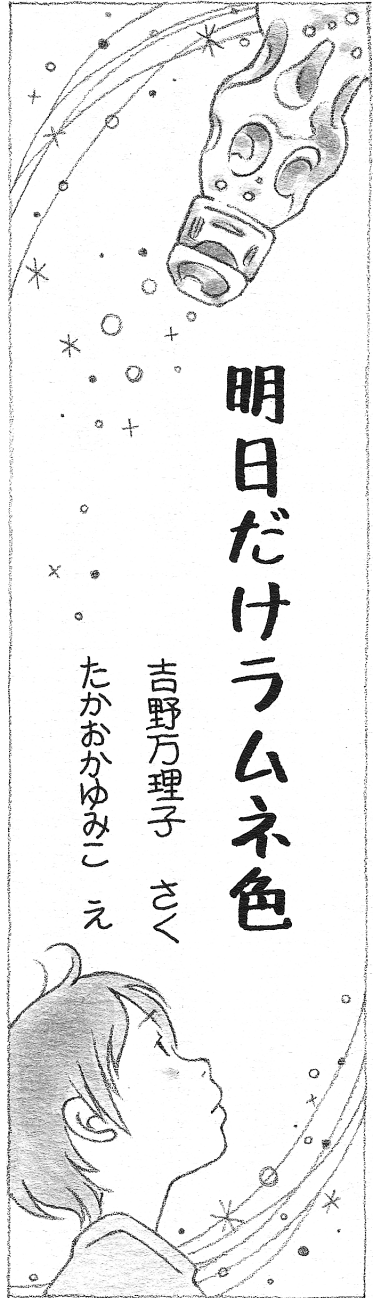 明日だけラムネ色
吉野万理子 さく
たかおかゆみこ え